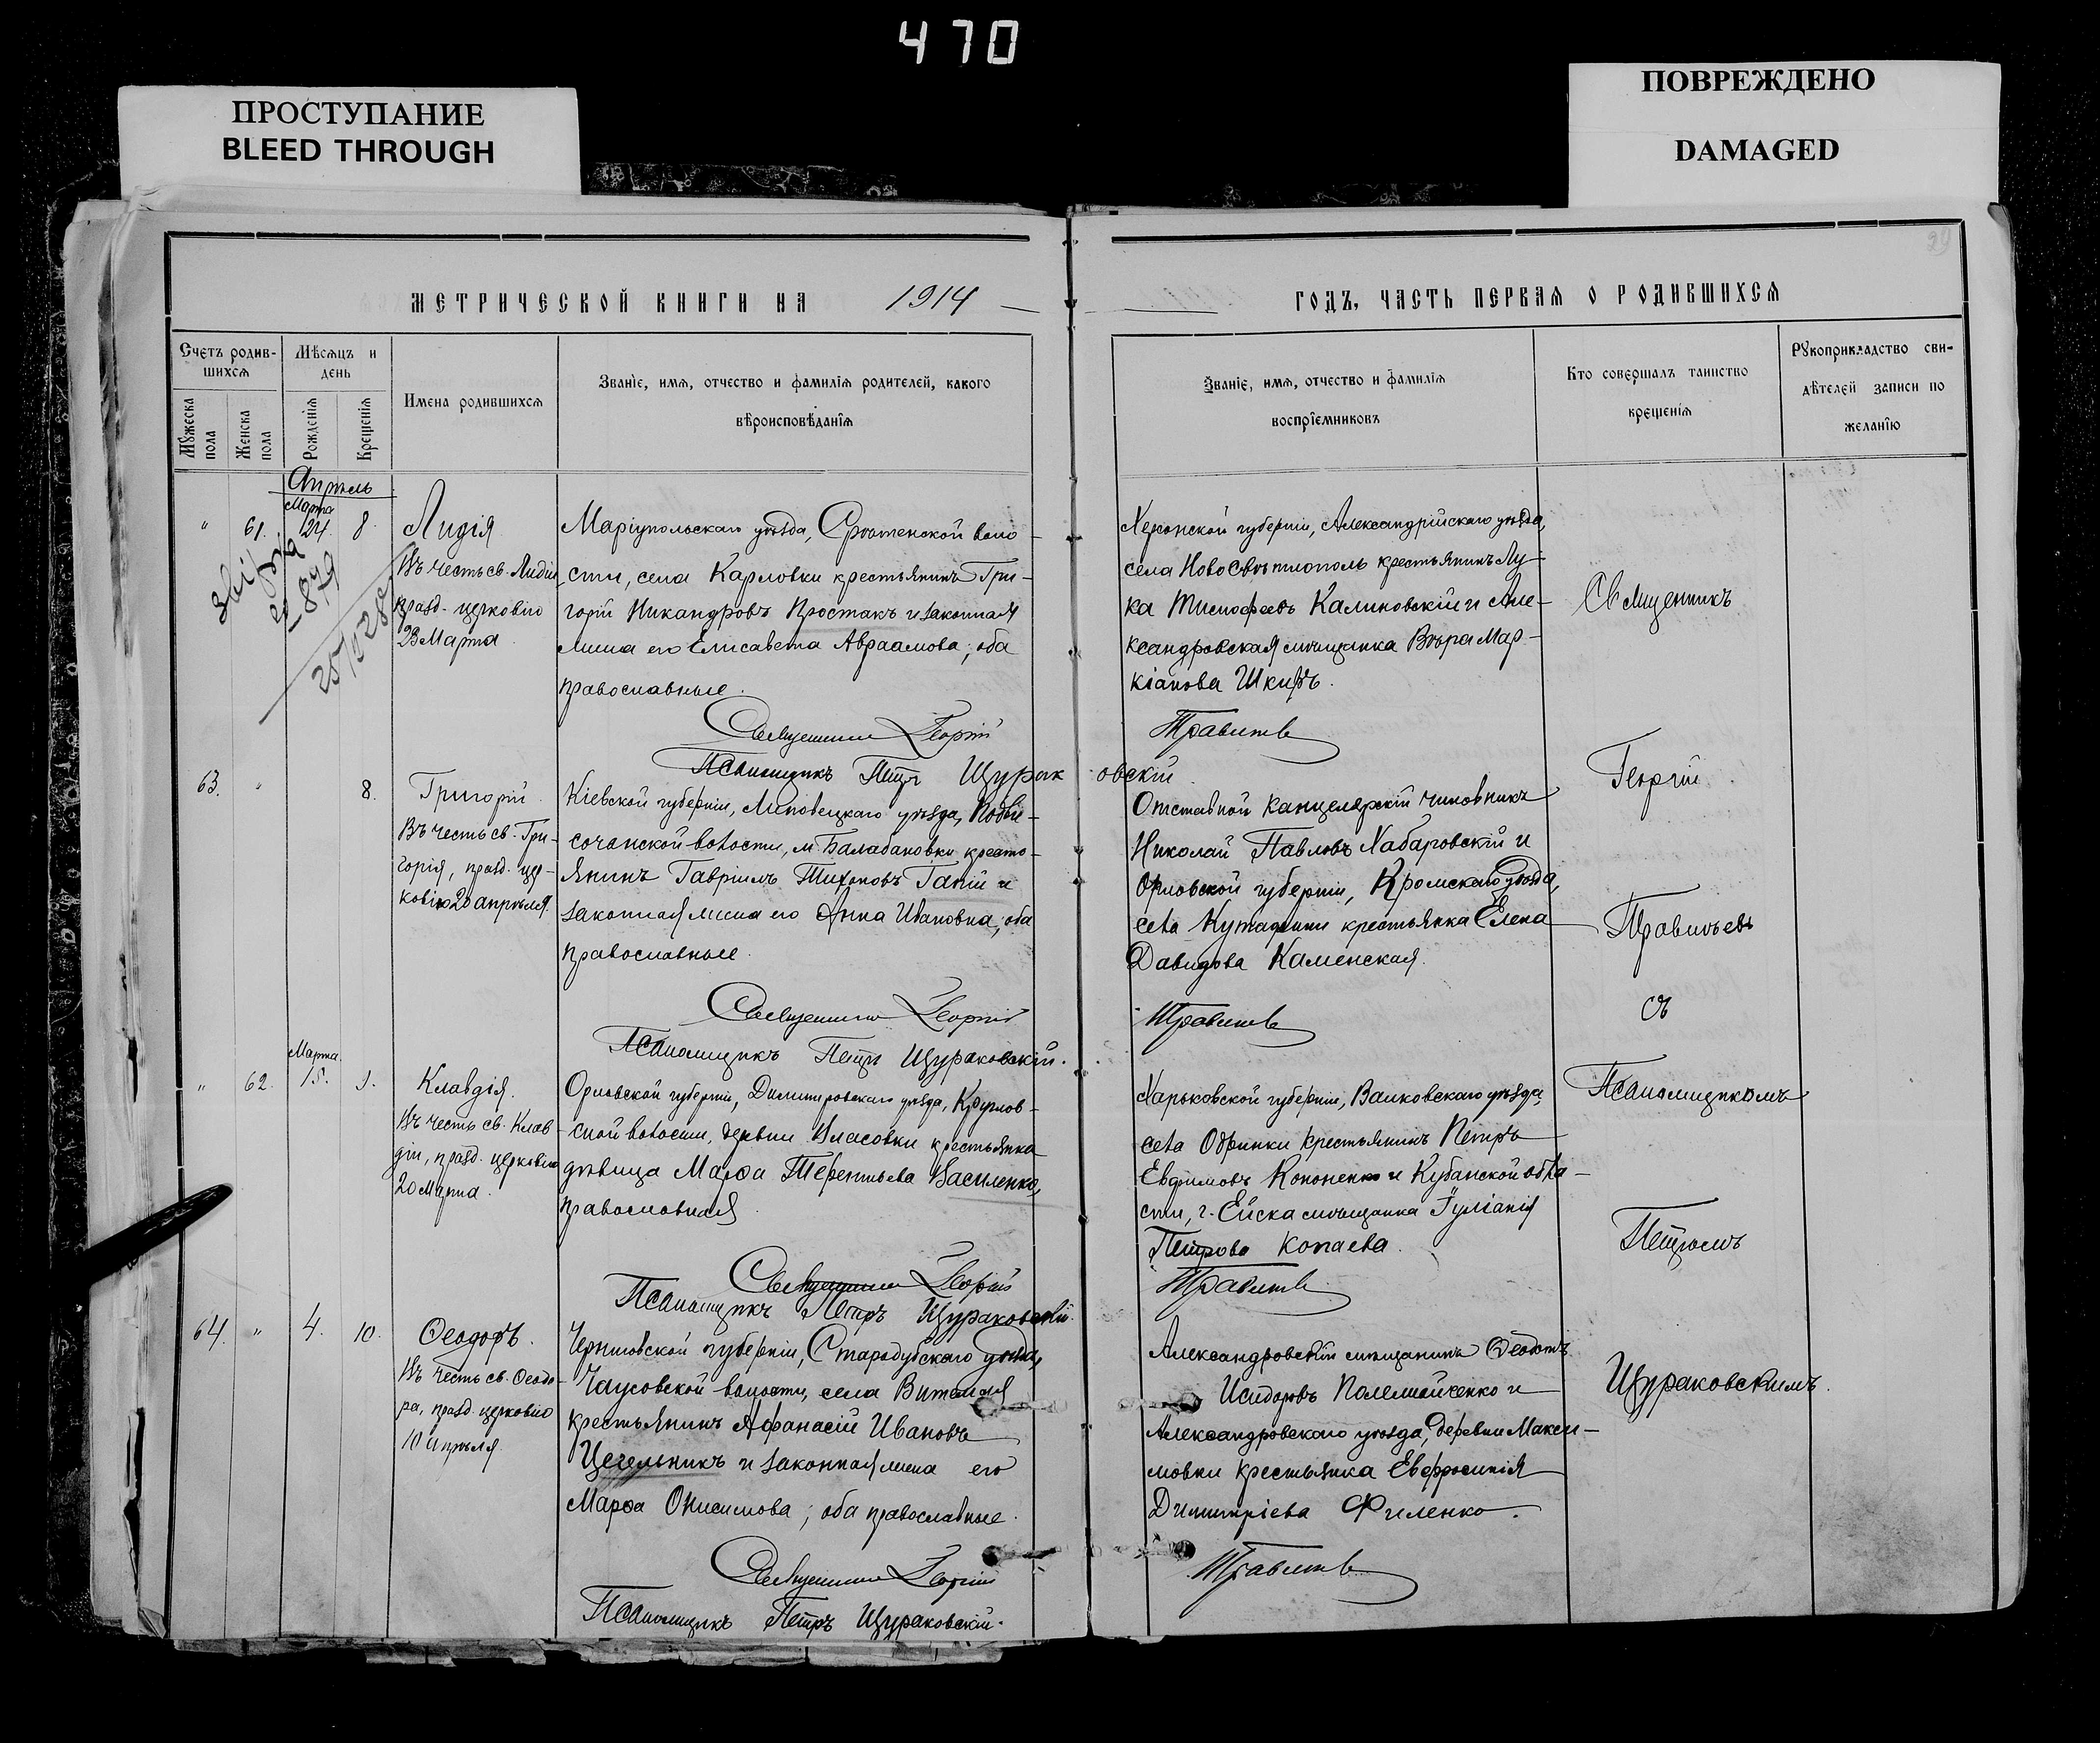 470
ПРОСТУПАНИЕ
BLEED THROUGH
ПОВРЕЖДЕНО
DAMAGED
29
МЕТРИЧЕСКОЙ КНИГИ НА 1914
ГОДЪ, ЧАСТЬ ПЕРВАЯ О РОДИВШИХСЯ
Счетъ родив-
шихся
Мужеска пола
Женска пола
Мѣсяцъ и
день
Рожденія
Крещенія
Имена родившихся
Званіе, имя, отчество и фамилія родителей, какого
вѣроисповѣданія
Званіе, имя, отчество и фамилія
воспріемниковъ
Кто совершалъ таинство
крещенія
Рукоприкладство сви-
дѣтелей записи по
желанію
Апрѣль
Марта
" 61. 24. 8.
Лидія
Въ честь св. Лидіи
празд. церковію
23 Марта.
Маріупольскаго уѣзда, волο-
сти, села Карловки крестьянинъ Гри-
горій Никандровъ Простакъ и законная
жена его Елисавета Авраамова; оба
православные.
Священникъ Георгій
Псаломщикъ Петръ Щураковскій
Херсонской губерніи, Александрійскаго уѣзда,
села НовоСвѣтлополь крестьянинъ Лу-
ка Тимофеевъ Калиновскій и Але-
ксандровская мѣщанка Вѣра Мар-
кіанова Шкиръ.
63. " 8.
Григорій.
Въ честь св. Гри-
горія, празд. цер-
ковію 20 апрѣля.
Кіевской губерніи, Липовецкаго уѣзда, Подвы-
сочанской волости, м. Балабановки кресть-
янинъ Гавріилъ Тихоновъ Гапій и
законная жена его Анна Ивановна; оба
православные.
Священникъ Георгій
Псаломщикъ Петръ Щураковскій.
Отставной канцелярскій чиновникъ
Николай Павловъ Хабаровскій и
Орловской губерніи, Кромскаго уѣзда,
села крестьянка Елена
Давидова Каменская.
Марта.
" 62. 15. 9.
Клавдія.
Въ честь св. Клав-
діи, празд. церковію
20 Марта.
Орловской губерніи, Димитровскаго уѣзда, Круглов-
ской волости, деревни Власовки крестьянка
дѣвица Марѳа Терентьева Василенко,
православная.
Священникъ Георгій
Псаломщикъ Петръ Щураковскій
Харьковской губерніи, Валковскаго уѣзда,
села Огринки крестьянинъ Петръ
Евфимовъ Кононенко и Кубанской обла-
сти, г. Ейска мѣщанка Іуліанія
Петрова Копаева.
64. " 4. 10.
Ѳеодоръ.
Въ честь св. Ѳеодо-
ра, празд. церковію
10 Апрѣля.
Черниговской губерніи, Стародубскаго уѣзда,
Чаусовской волости, села
крестьянинъ Афанасій Ивановъ
Цегельникъ и законная жена его
Марѳа Онисимова; оба православные.
Священникъ Георгій
Псаломщикъ Петръ Щураковскій.
Александровскій мѣщанинъ Ѳеодотъ
Исидоровъ и
Александровскаго уѣзда, деревни Макси-
мовки крестьянка Евфросинія
Димитріева Филенко.
Священникъ
Георгій
съ
Псаломщикомъ
Петромъ
Щураковскимъ.